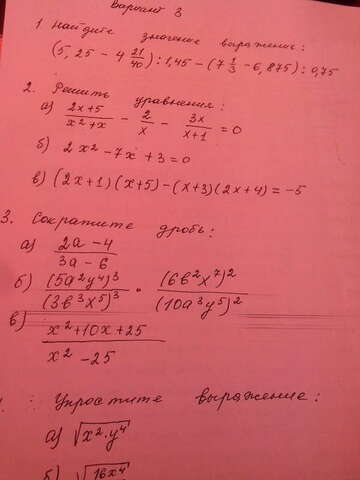 Вариант 3
1 Найдите значение выражение:
(5,25 - 4 21/40) : 1,45 - (7 1/3 - 6,875) : 0,75
2. Решить уравнения:
а) (2x+5)/(x²+x) - 2/x - 3x/(x+1) = 0
б) 2x² - 7x + 3 = 0
в) (2x+1)(x+5) - (x+3)(2x+4) = -5
3. Сократите дробь:
а) (2a - 4)/(3a - 6)
б) (5a²y⁴)³/(3b³x⁵)³ · (6b²x⁷)²/(10a³y⁵)²
в) (x²+10x+25)/(x² - 25)
Упростите выражение:
а) √(x²·y⁴)
б) √(16x⁴